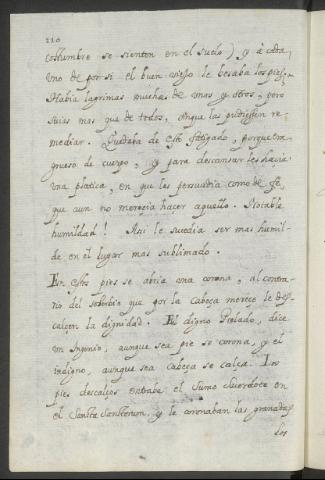 110
costumbre se sienten en el suelo) y à cada
uno de por si el buen viejo le besaba los pies.
Habia lagrimas muchas de unas y otros, pero
suias mas que de todos, sin que las pudiessen re-
mediar. Quedaba de esto fatigado, porque era
grueso de cuerpo, y para descansar les hacia
una platica, en que les persuadia como de fè,
que aun no merezia hacer aquello. Notable
humildad! Asi le sucedia ser mas humil-
de en el lugar mas sublimado.
En estos pies se abria una corona, al contra-
rio del soberbio que por la cabeza merece le des-
calzen la dignidad. El digno Prelado, dice
un Ingenio, aunque sea pie se corona, y el
indigno, aunque sea cabeza se calza. Los
pies descalzos entraba el Sumo Sacerdote en
el Sancta Sanctorum, y le coronaban las granadas
los